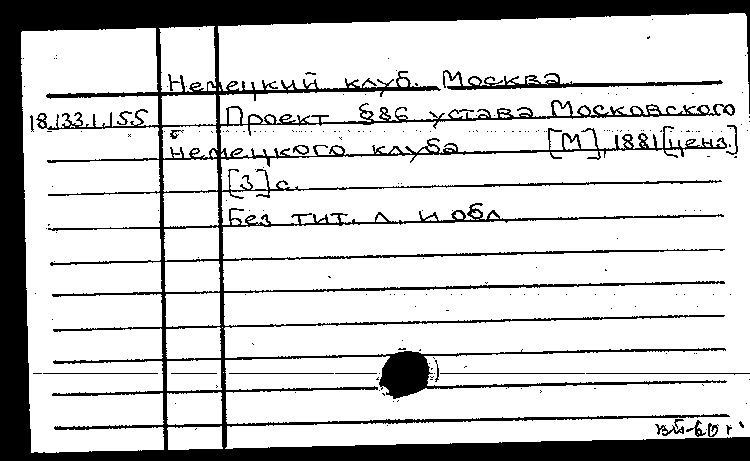 Немецкий клуб. Москва.
18.133.1.155 Проект §86 устава Московского
Немецкого клуба. [М], 1881 [ценз.]
[3] с.
Без тит. л. и обл.